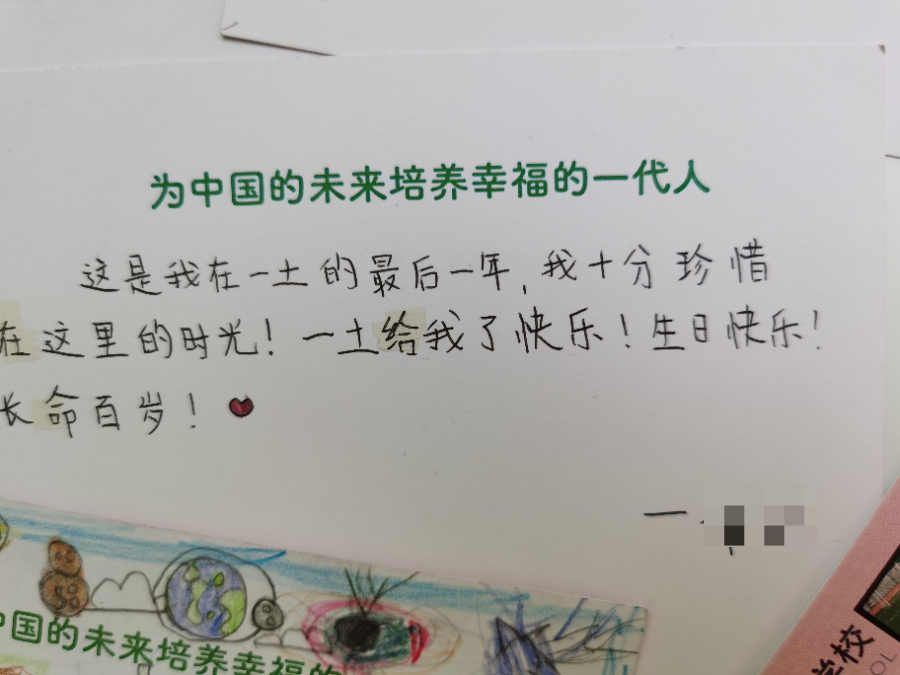 为中国的未来培养幸福的一代人
这是我在一土的最后一年,我十分珍惜
在这里的时光!一土给我了快乐!生日快乐!
长命百岁!
中国的未来培养幸福的
学校
OL